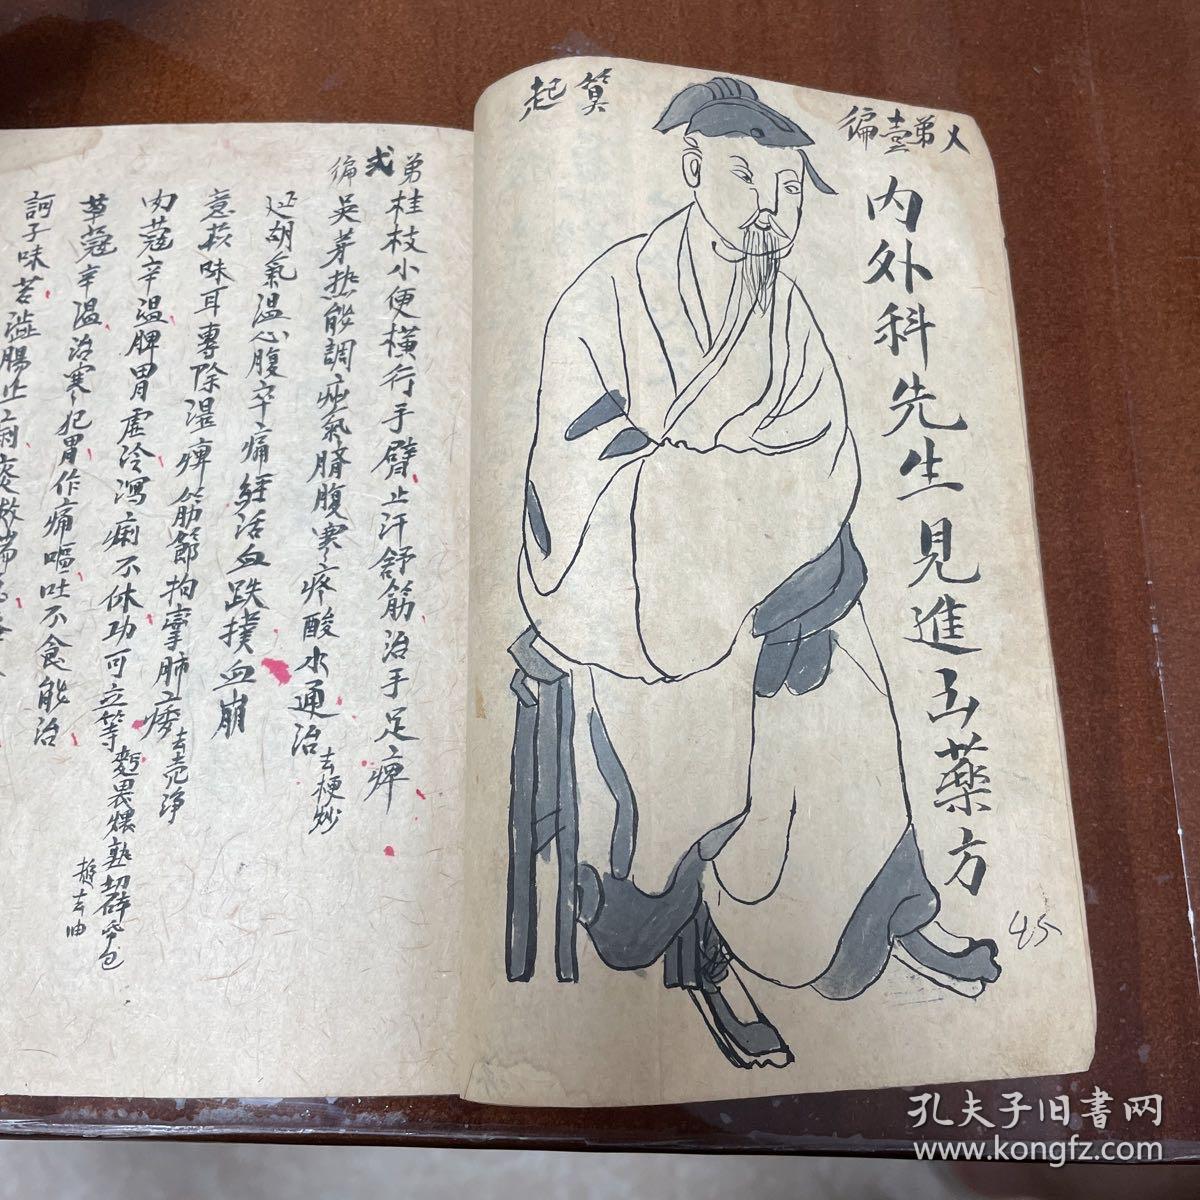 弟壹偏
算起
内外科先生見進山藥方
45
弟弍偏
桂枝小便横行手臂止汗舒筋治手足痺
吳芽热能調疝氣臍腹寒疼酸水通治去梗炒
延胡氣温心腹卒痛經活血跌撲血崩
意苡味耳專除濕痺筋節拘攣肺痿去壳净
肉蔻辛温脾胃虚冷瀉痢不休功可立等麪畏煨熟切碎
草蔻辛温治寒犯胃作痛嘔吐不食能治
去油
訶子味苦澁腸止痢痰
孔夫子旧書网
www.kongfz.com